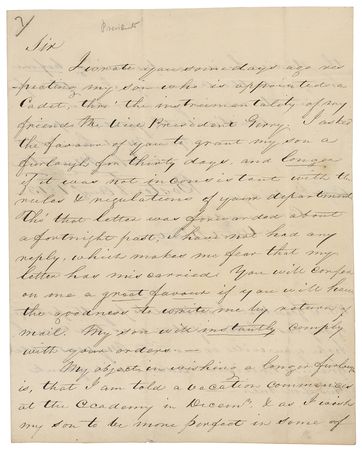 Sir
I wrote you some days ago res
pecting my son who is appointed a
Cadet, thro' the instrumentality of my
friend the Vice President Gerry. I asked
the favour of you to grant my son a
furlough for thirty days, and longer
if it was not inconsistant with the
rules & regulations of your department
Tho' that letter was forwarded about
a fortnight past, I have not had any
reply, which makes me fear that my
letter has miscarried. You will confer
on me a great favour if you will have
the goodness to write me by return of
mail. My son will instantly comply
with your orders —
My object in wishing a longer furlough
is, that I am told a vacation commences
at the Academy in Decemr. & as I wish
my son to be more perfect in some of